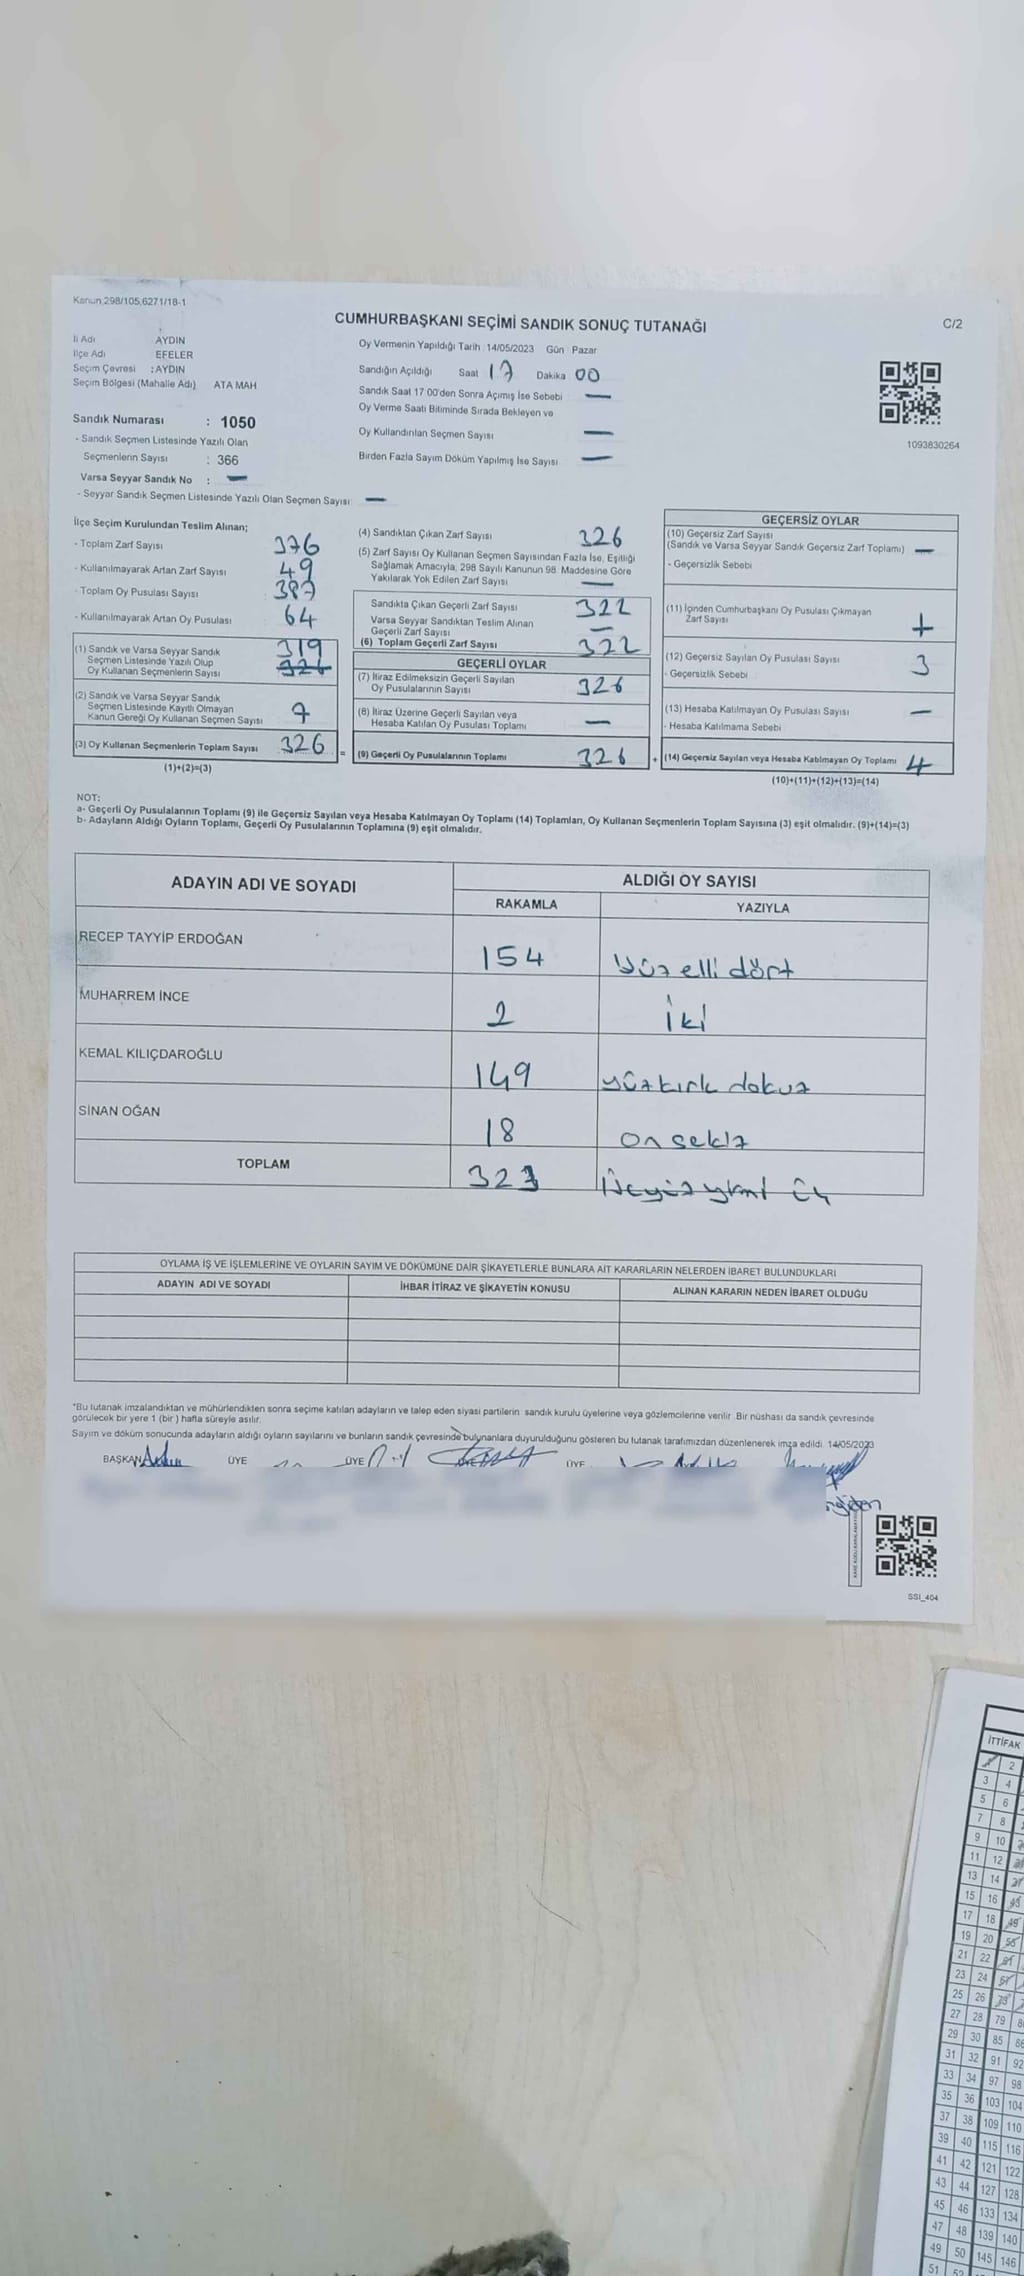 Kanun,298/105,6271/18-1
CUMHURBAŞKANI SEÇİMİ SANDIK SONUÇ TUTANAĞI
C/2
İl Adı AYDIN
İlçe Adı EFELER
Seçim Çevresi : AYDIN
Seçim Bölgesi (Mahalle Adı) ATA MAH
Sandık Numarası : 1050
- Sandık Seçmen Listesinde Yazılı Olan
Seçmenlerin Sayısı : 366
Varsa Seyyar Sandık No : —
- Seyyar Sandık Seçmen Listesinde Yazılı Olan Seçmen Sayısı: —
Oy Vermenin Yapıldığı Tarih :14/05/2023 Gün : Pazar
Sandığın Açıldığı Saat 17 Dakika 00
Sandık Saat 17:00'den Sonra Açımış İse Sebebi —
Oy Verme Saati Bitiminde Sırada Bekleyen ve
Oy Kullandırılan Seçmen Sayısı —
Birden Fazla Sayım Döküm Yapılmış İse Sayısı —
1093830264
İlçe Seçim Kurulundan Teslim Alınan;
- Toplam Zarf Sayısı 376
- Kullanılmayarak Artan Zarf Sayısı 49
- Toplam Oy Pusulası Sayısı 387
- Kullanılmayarak Artan Oy Pusulası 64
(1) Sandık ve Varsa Seyyar Sandık 319
Seçmen Listesinde Yazılı Olup
Oy Kullanan Seçmenlerin Sayısı 326
(2) Sandık ve Varsa Seyyar Sandık
Seçmen Listesinde Kayıtlı Olmayan
Kanun Gereği Oy Kullanan Seçmen Sayısı 7
(3) Oy Kullanan Seçmenlerin Toplam Sayısı 326 =
(1)+(2)=(3)
(4) Sandıktan Çıkan Zarf Sayısı 326
(5) Zarf Sayısı Oy Kullanan Seçmen Sayısından Fazla İse, Eşitliği
Sağlamak Amacıyla, 298 Sayılı Kanunun 98. Maddesine Göre
Yakılarak Yok Edilen Zarf Sayısı —
Sandıkta Çıkan Geçerli Zarf Sayısı 322
Varsa Seyyar Sandıktan Teslim Alınan
Geçerli Zarf Sayısı —
(6) Toplam Geçerli Zarf Sayısı 322
GEÇERLİ OYLAR
(7) İtiraz Edilmeksizin Geçerli Sayılan
Oy Pusulalarının Sayısı 326
(8) İtiraz Üzerine Geçerli Sayılan veya
Hesaba Katılan Oy Pusulaları Toplamı —
(9) Geçerli Oy Pusulalarının Toplamı 326 +
GEÇERSİZ OYLAR
(10) Geçersiz Zarf Sayısı
(Sandık ve Varsa Seyyar Sandık Geçersiz Zarf Toplamı) —
- Geçersizlik Sebebi
(11) İçinden Cumhurbaşkanı Oy Pusulası Çıkmayan
Zarf Sayısı
(12) Geçersiz Sayılan Oy Pusulası Sayısı 3
- Geçersizlik Sebebi
(13) Hesaba Katılmayan Oy Pusulası Sayısı —
- Hesaba Katılmama Sebebi
(14) Geçersiz Sayılan veya Hesaba Katılmayan Oy Toplamı 4
(10)+(11)+(12)+(13)=(14)
NOT:
a- Geçerli Oy Pusulalarının Toplamı (9) ile Geçersiz Sayılan veya Hesaba Katılmayan Oy Toplamı (14) Toplamları, Oy Kullanan Seçmenlerin Toplam Sayısına (3) eşit olmalıdır. (9)+(14)=(3)
b- Adayların Aldığı Oyların Toplamı, Geçerli Oy Pusulalarının Toplamına (9) eşit olmalıdır.
ADAYIN ADI VE SOYADI ALDIĞI OY SAYISI
RAKAMLA YAZIYLA
RECEP TAYYİP ERDOĞAN 154 Yüz elli dört
MUHARREM İNCE 2 iki
KEMAL KILIÇDAROĞLU 149 yüzkırk dokuz
SİNAN OĞAN 18 on sekiz
TOPLAM 323 Üçyüz yirmi üç
OYLAMA İŞ VE İŞLEMLERİNE VE OYLARIN SAYIM VE DÖKÜMÜNE DAİR ŞİKAYETLERLE BUNLARA AİT KARARLARIN NELERDEN İBARET BULUNDUKLARI
ADAYIN ADI VE SOYADI İHBAR İTİRAZ VE ŞİKAYETİN KONUSU ALINAN KARARIN NEDEN İBARET OLDUĞU
*Bu tutanak imzalandıktan ve mühürlendikten sonra seçime katılan adayların ve talep eden siyasi partilerin sandık kurulu üyelerine veya gözlemcilerine verilir. Bir nüshası da sandık çevresinde
görülecek bir yere 1 (bir ) hafta süreyle asılır.
Sayım ve döküm sonucunda adayların aldığı oyların sayılarını ve bunların sandık çevresinde bulunanlara duyurulduğunu gösteren bu tutanak tarafımızdan düzenlenerek imza edildi. 14/05/2023
BAŞKAN ÜYE ÜYE ÜYE
SSI_404
İTTİFAK
2
3 4
5 6
7 8
9 10
11 12
13 14
15 16
17 18
19 20
21 22
23 24
25 26
27 28 79
29 30 85 86
31 32 91 92
33 34 97 98
35 36 103 104
37 38 109 110
39 40 115 116
41 42 121 122
43 44 127 128
45 46 133 134
47 48 139 140
49 50 145 146
51